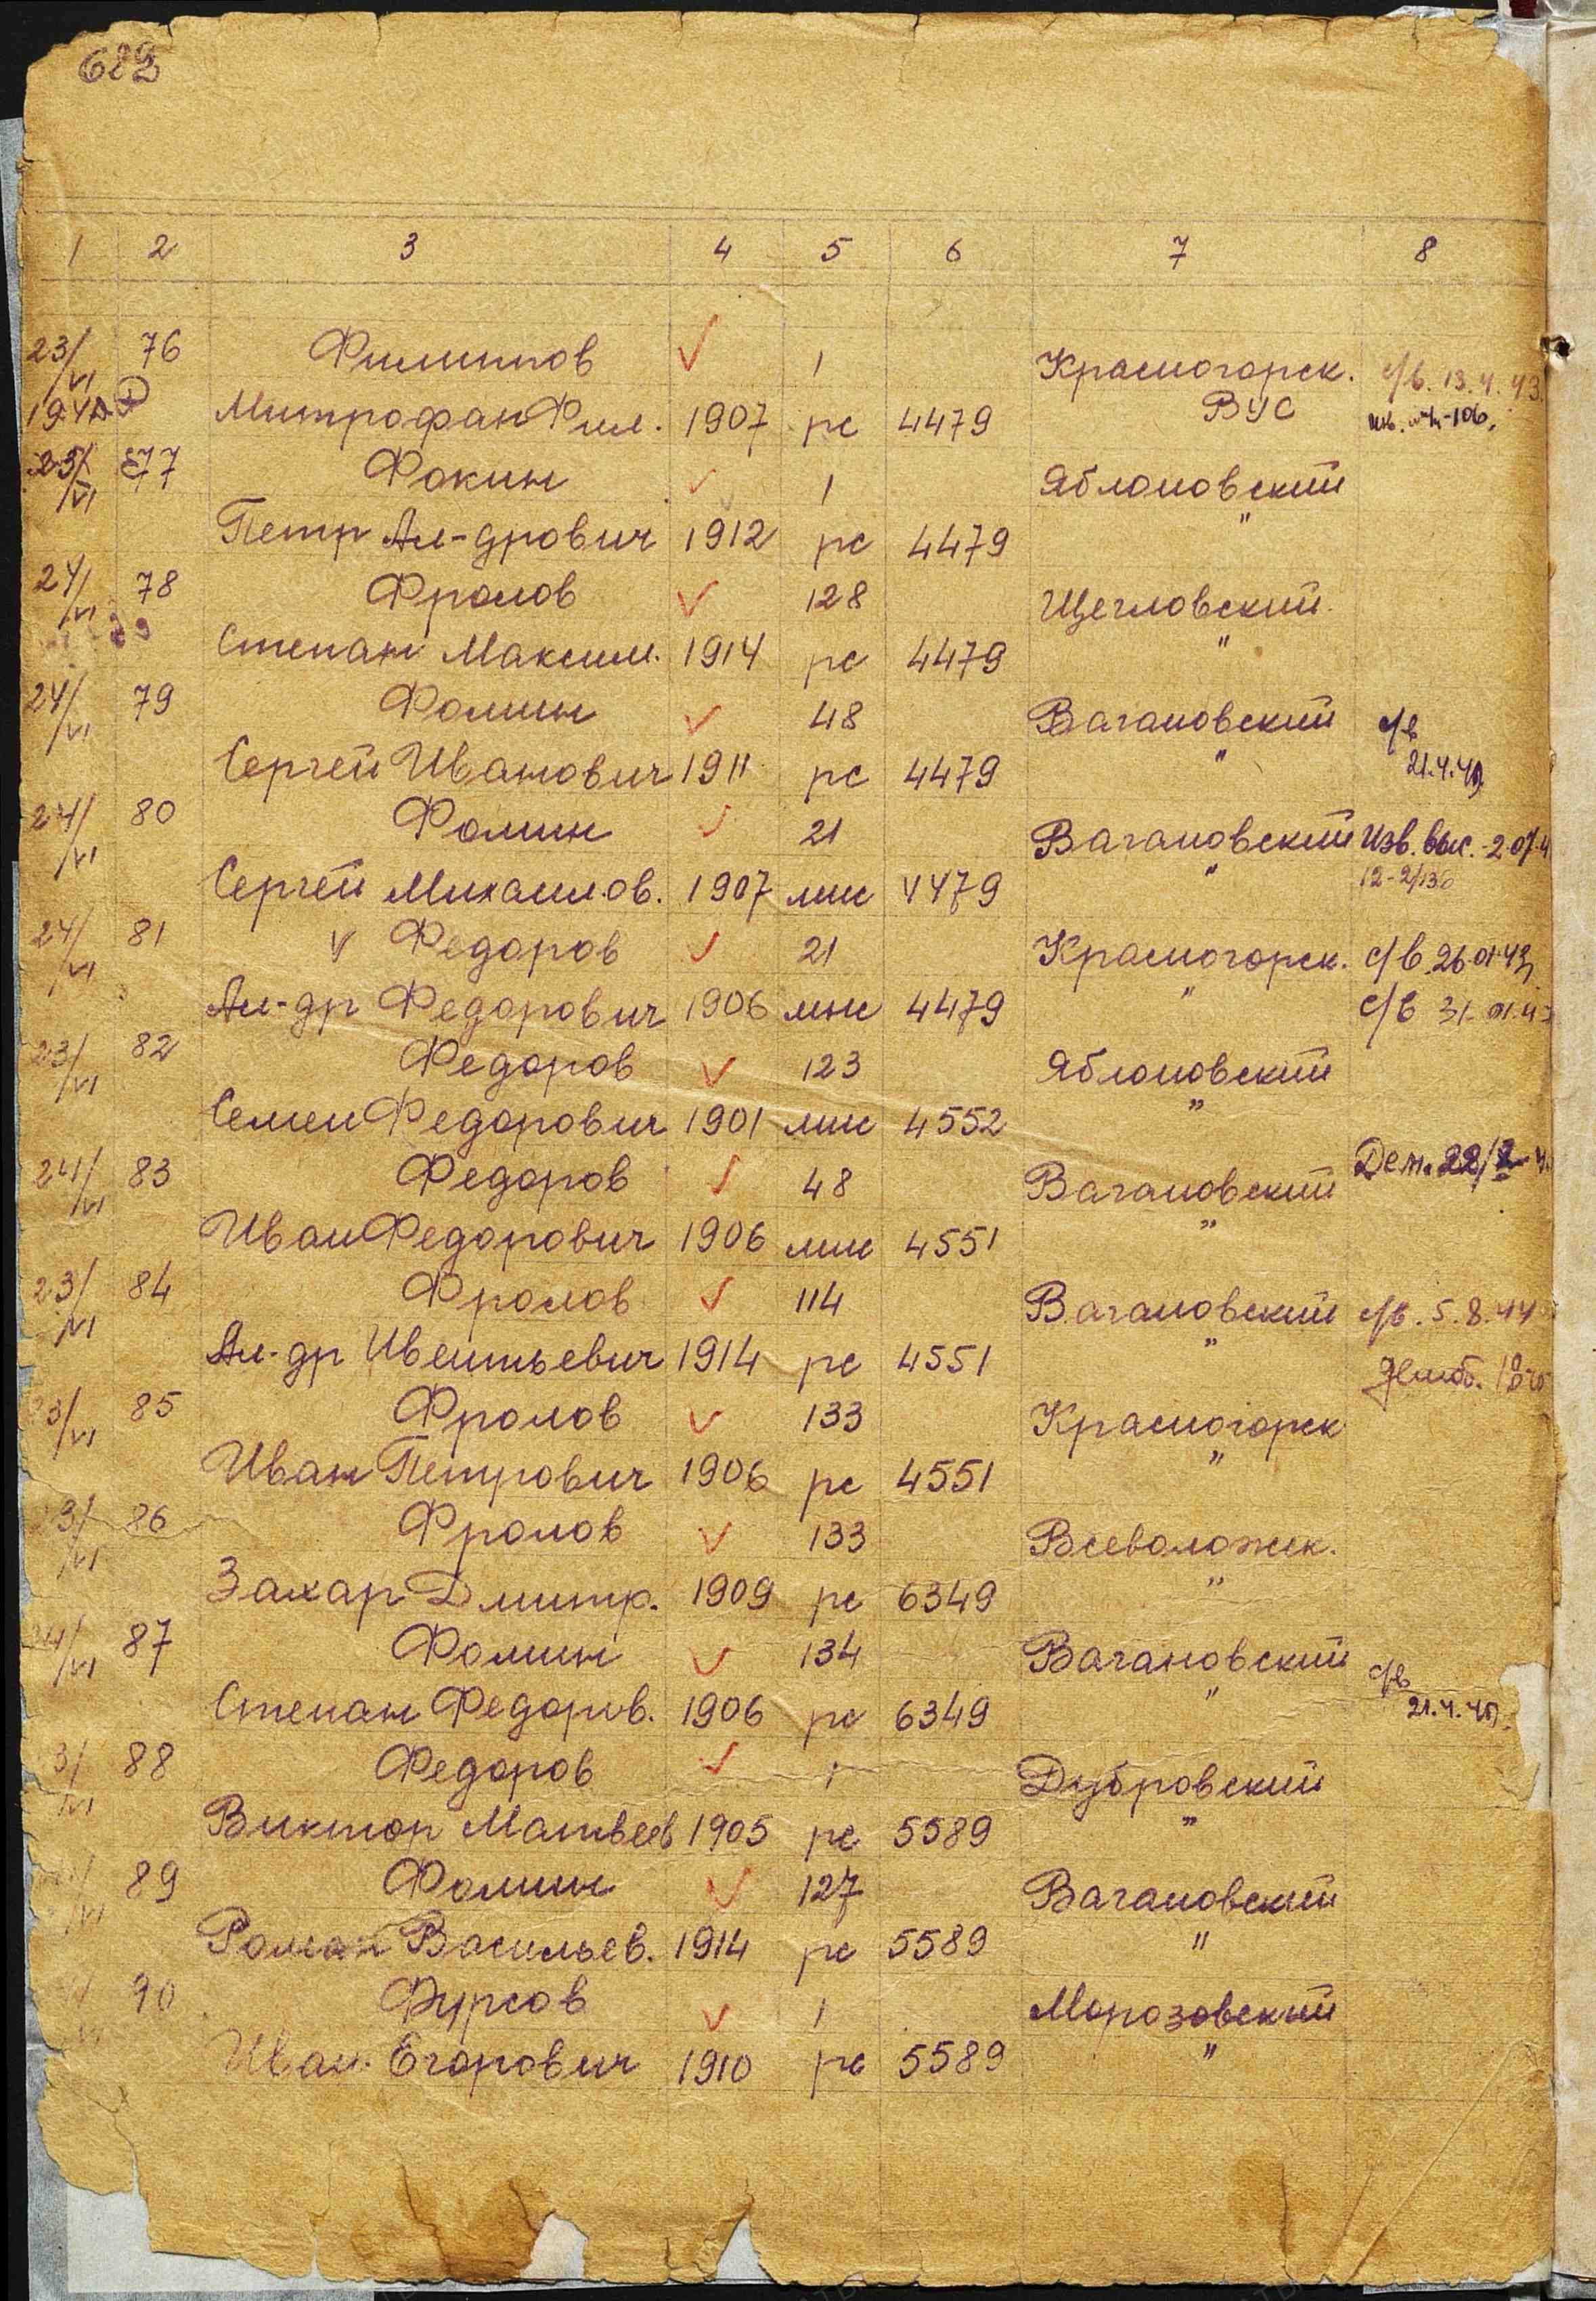 689
1 2 3 4 5 6 7 8
23/VI 76 Филиппов 1 Красногорск. с/в. 13.4.43.
Митрофан Фил. 1907 рс 4479 ВУС
77 Фокин 1 Яблоновский
Петр Ал-дрович 1912 рс 4479 "
24/VI 78 Фролов 128 Щегловский
Степан Максим. 1914 рс 4479 "
24/VI 79 Фомин 48 Вагановский с/в
Сергей Иванович 1911 рс 4479 " 21.4.
24/VI 80 Фомин 21 Вагановский Изв.
Сергей Михаилов. 1907 мис 4479 "
24/VI 81 v Федоров 21 Красногорск. с/в. 26.01.43
Ал-др Федорович 1906 мис 4479 " с/в 31.
23/VI 82 Федоров 123 Яблоновский
Семен Федорович 1901 мис 4552 "
24/VI 83 Федоров 48 Вагановский Дем. 22/
Иван Федорович 1906 мис 4551 "
23/VI 84 Фролов 114 Вагановский с/в. 5.8.44
Ал-др Ивентьевич 1914 рс 4551 "
85 Фролов 133 Красногорск
Иван Петрович 1906 рс 4551 "
86 Фролов 133 Всеволожск.
Захар Дмитр. 1909 рс 6349 "
87 Фомин 134 Вагановский с/в
Степан Федоров. 1906 рс 6349 " 21.4.
88 Федоров 1 Дубровский
Виктор Матвеев 1905 рс 5589 "
89 Фомин 127 Вагановский
Роман Васильев. 1914 рс 5589 "
90 Фурсов 1 Морозовский
Иван Егорович 1910 рс 5589 "